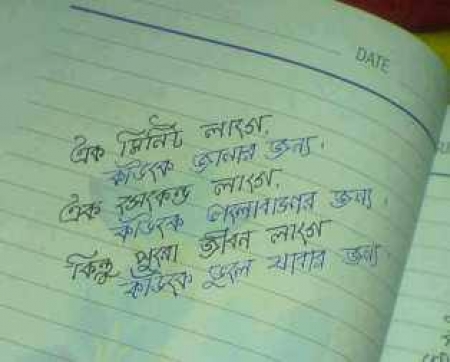 DATE
এক মিনিট লাগে,
কাউকে জানার জন্য।
এক সেকেন্ড লাগে,
কাউকে ভালোবাসার জন্য,
কিন্তু পুরো জীবন লাগে
কাউকে ভুলে যাবার জন্য